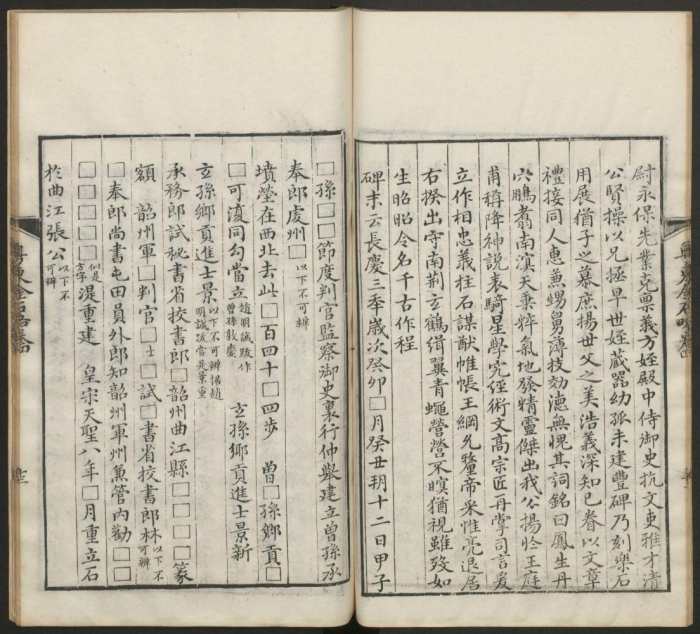 尉永保先業克稟義方姪殿中侍御史抗文吏雅才清
公賢操以兄拯早世姪藏器幼孤未建豐碑乃刻樂石
用展猶子之慕庶揚世父之美浩義深知己眷以文章
禮接同人惠兼甥舅薄技効德無愧其詞銘曰鳳生丹
穴鵬翥南溟天秉粹氣地發精靈傑出我公揚於王庭
甫稱降神說表騎星學究經術文高宗匠再掌司言爰
立作相忠義柱石謀猷帷帳王綱允釐帝采惟亮退居
右揆出守南荆玄鶴緝翼青蠅營營不瞑猶視雖歿如
生昭昭令名千古作程
碑末云長慶三季歲次癸卯□月癸丑朔十二日甲子
□孫□□節度判官監察御史裏行仲舉建立曾孫承
奉郎處州□以下不可辨
墳塋在西北去此□百四十□四步 曾□孫鄉貢□
□可復同勾當立趙明誠跋作曾孫敦慶 玄孫鄉貢進士景新
玄孫鄉貢進士景以下不可辨據趙明誠跋當是景重
承務郎試秘書省校書郎□韶州曲江縣□□□□篆
額 韶州軍□判官□士□試□書省校書郎林以下不可辨
□奉郎尚書屯田員外郎知韶州軍州兼管內勸□□
□□□□□似是方字湜重建 皇宗天聖八年□月重立石
於曲江張公以下不可辨